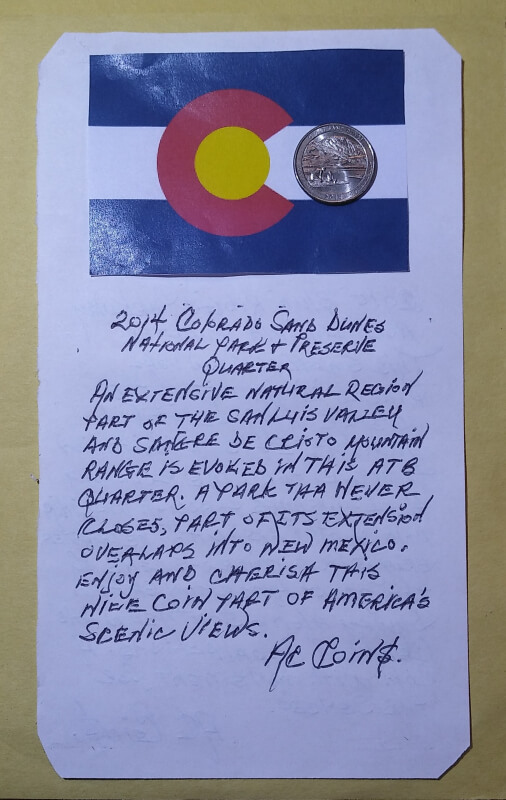 2014 COLORADO SAND DUNES
NATIONAL PARK & PRESERVE
QUARTER
AN EXTENSIVE NATURAL REGION
PART OF THE SAN LUIS VALLEY
AND SANGRE DE CRISTO MOUNTAIN
RANGE IS EVOKED IN THIS ATB
QUARTER. A PARK THA NEVER
CLOSES, PART OF ITS EXTENSION
OVERLAPS INTO NEW MEXICO.
ENJOY AND CHERISH THIS
NICE COIN PART OF AMERICA'S
SCENIC VIEWS.
AC COIN$.